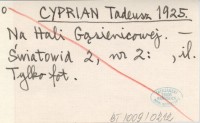 o CYPRIAN Tadeusz 1925.
Na Hali Gąsienicowej. —
Światowid 2, nr 2: , il.
Tylko fot.